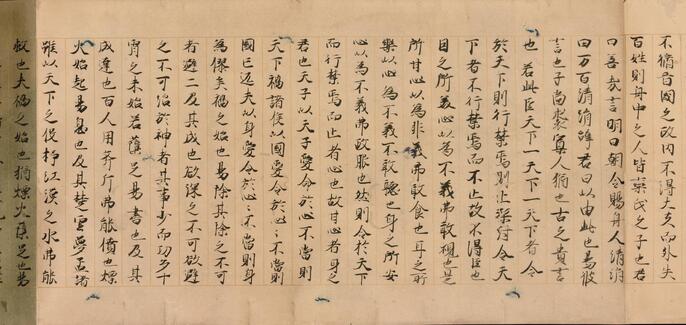 不脩晉國之政內不得大夫而外失
百姓則舟中之人皆欒氏之子也君
曰善哉言明日朝令賜舟人清涓
田万百清涓辭君曰以由此也易彼
言也子尚喪寡人猶也古之貴言
也若此臣天下一天下一天下者令
於天下則行禁焉則止桀紂令天
下者不行禁焉而不止故不得臣也
目之所美心以為不義弗敢視也口
所甘心以為非義弗敢食也耳之所
樂心以為不義不敢聽也身之所安
心以為不義弗敢服也然則令於天下
而行禁焉而止者心也故曰心者身之
君也天子以天子受令於心不當則
天下禍諸侯以國受令於心〻不當則
國亡返夫以身受令於心〻不當則身
為僇矣禍之始也易除其除之不可
者避之及其成也欲除之不可欲避
之不可治於神者其事少而功多干
霄之木始若蘖足易去也及其
成達也百人用斧斤弗能僨也熛
火始起易息也及其焚雲夢孟諸
雖以天下之役抒江漢之水弗能
救也夫禍之始也猶熛火蘖足也易